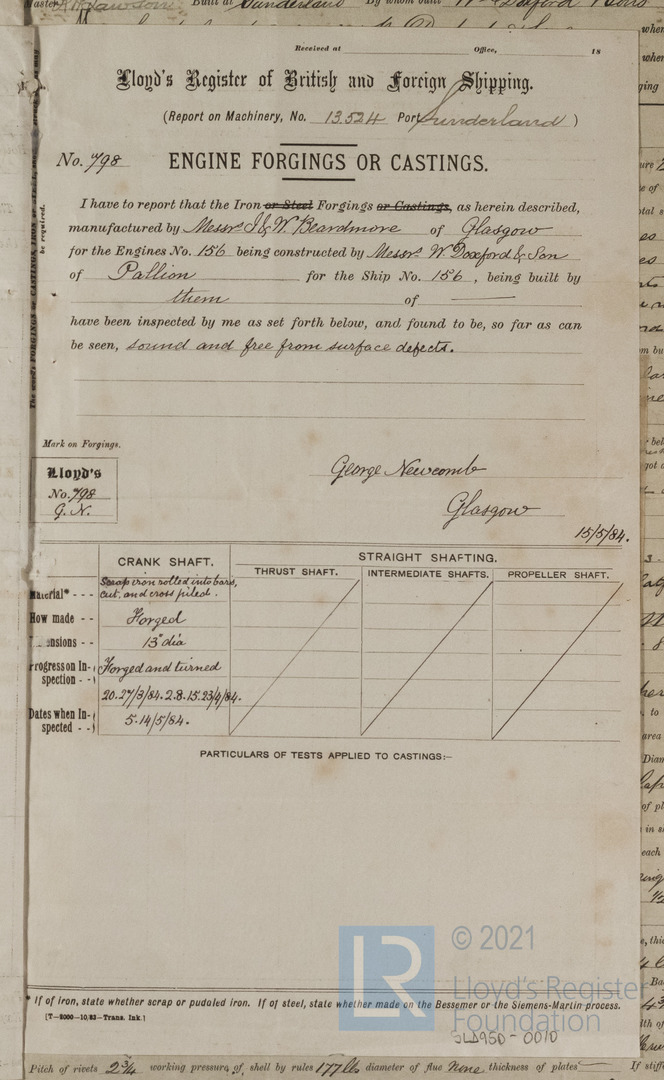 Built at Sunderland By whom built
Received at Office, 18
Lloyd's Register of British and Foreign Shipping.
(Report on Machinery, No. 13524 Port Sunderland)
No. 798 ENGINE FORGINGS OR CASTINGS.
I have to report that the Iron or Steel Forgings or Castings, as herein described,
manufactured by Messrs I & W. Beardmore of Glasgow
for the Engines No. 156 being constructed by Messrs W. Doxford & Son
of Pallion for the Ship No. 156, being built by
them of —
have been inspected by me as set forth below, and found to be, so far as can
be seen, sound and free from surface defects.
Mark on Forgings.
Lloyd's
No. 798
G. N.
George Newcomb
Glasgow
15/5/84.
CRANK SHAFT. STRAIGHT SHAFTING.
THRUST SHAFT. INTERMEDIATE SHAFTS. PROPELLER SHAFT.
Material* - - - Scrap iron rolled into bars,
cut, and cross piled.
How made - - Forged
ensions - - 13" dia
Progress on In-
spection - - Forged and turned
20.27/3/84. 2.8.15.23/4/84.
Dates when In-
spected - - 5.14/5/84.
PARTICULARS OF TESTS APPLIED TO CASTINGS:—
© 2021
LR
Lloyd's Register
Foundation
* If of iron, state whether scrap or pudoled iron. If of steel, state whether made on the Bessemer or the Siemens-Martin process.
[T—2000—10/83—Trans. Ink.]
SLD950-0010
Pitch of rivets 2 3/4 working pressure of shell by rules 177 lbs diameter of flue None thickness of plates — If